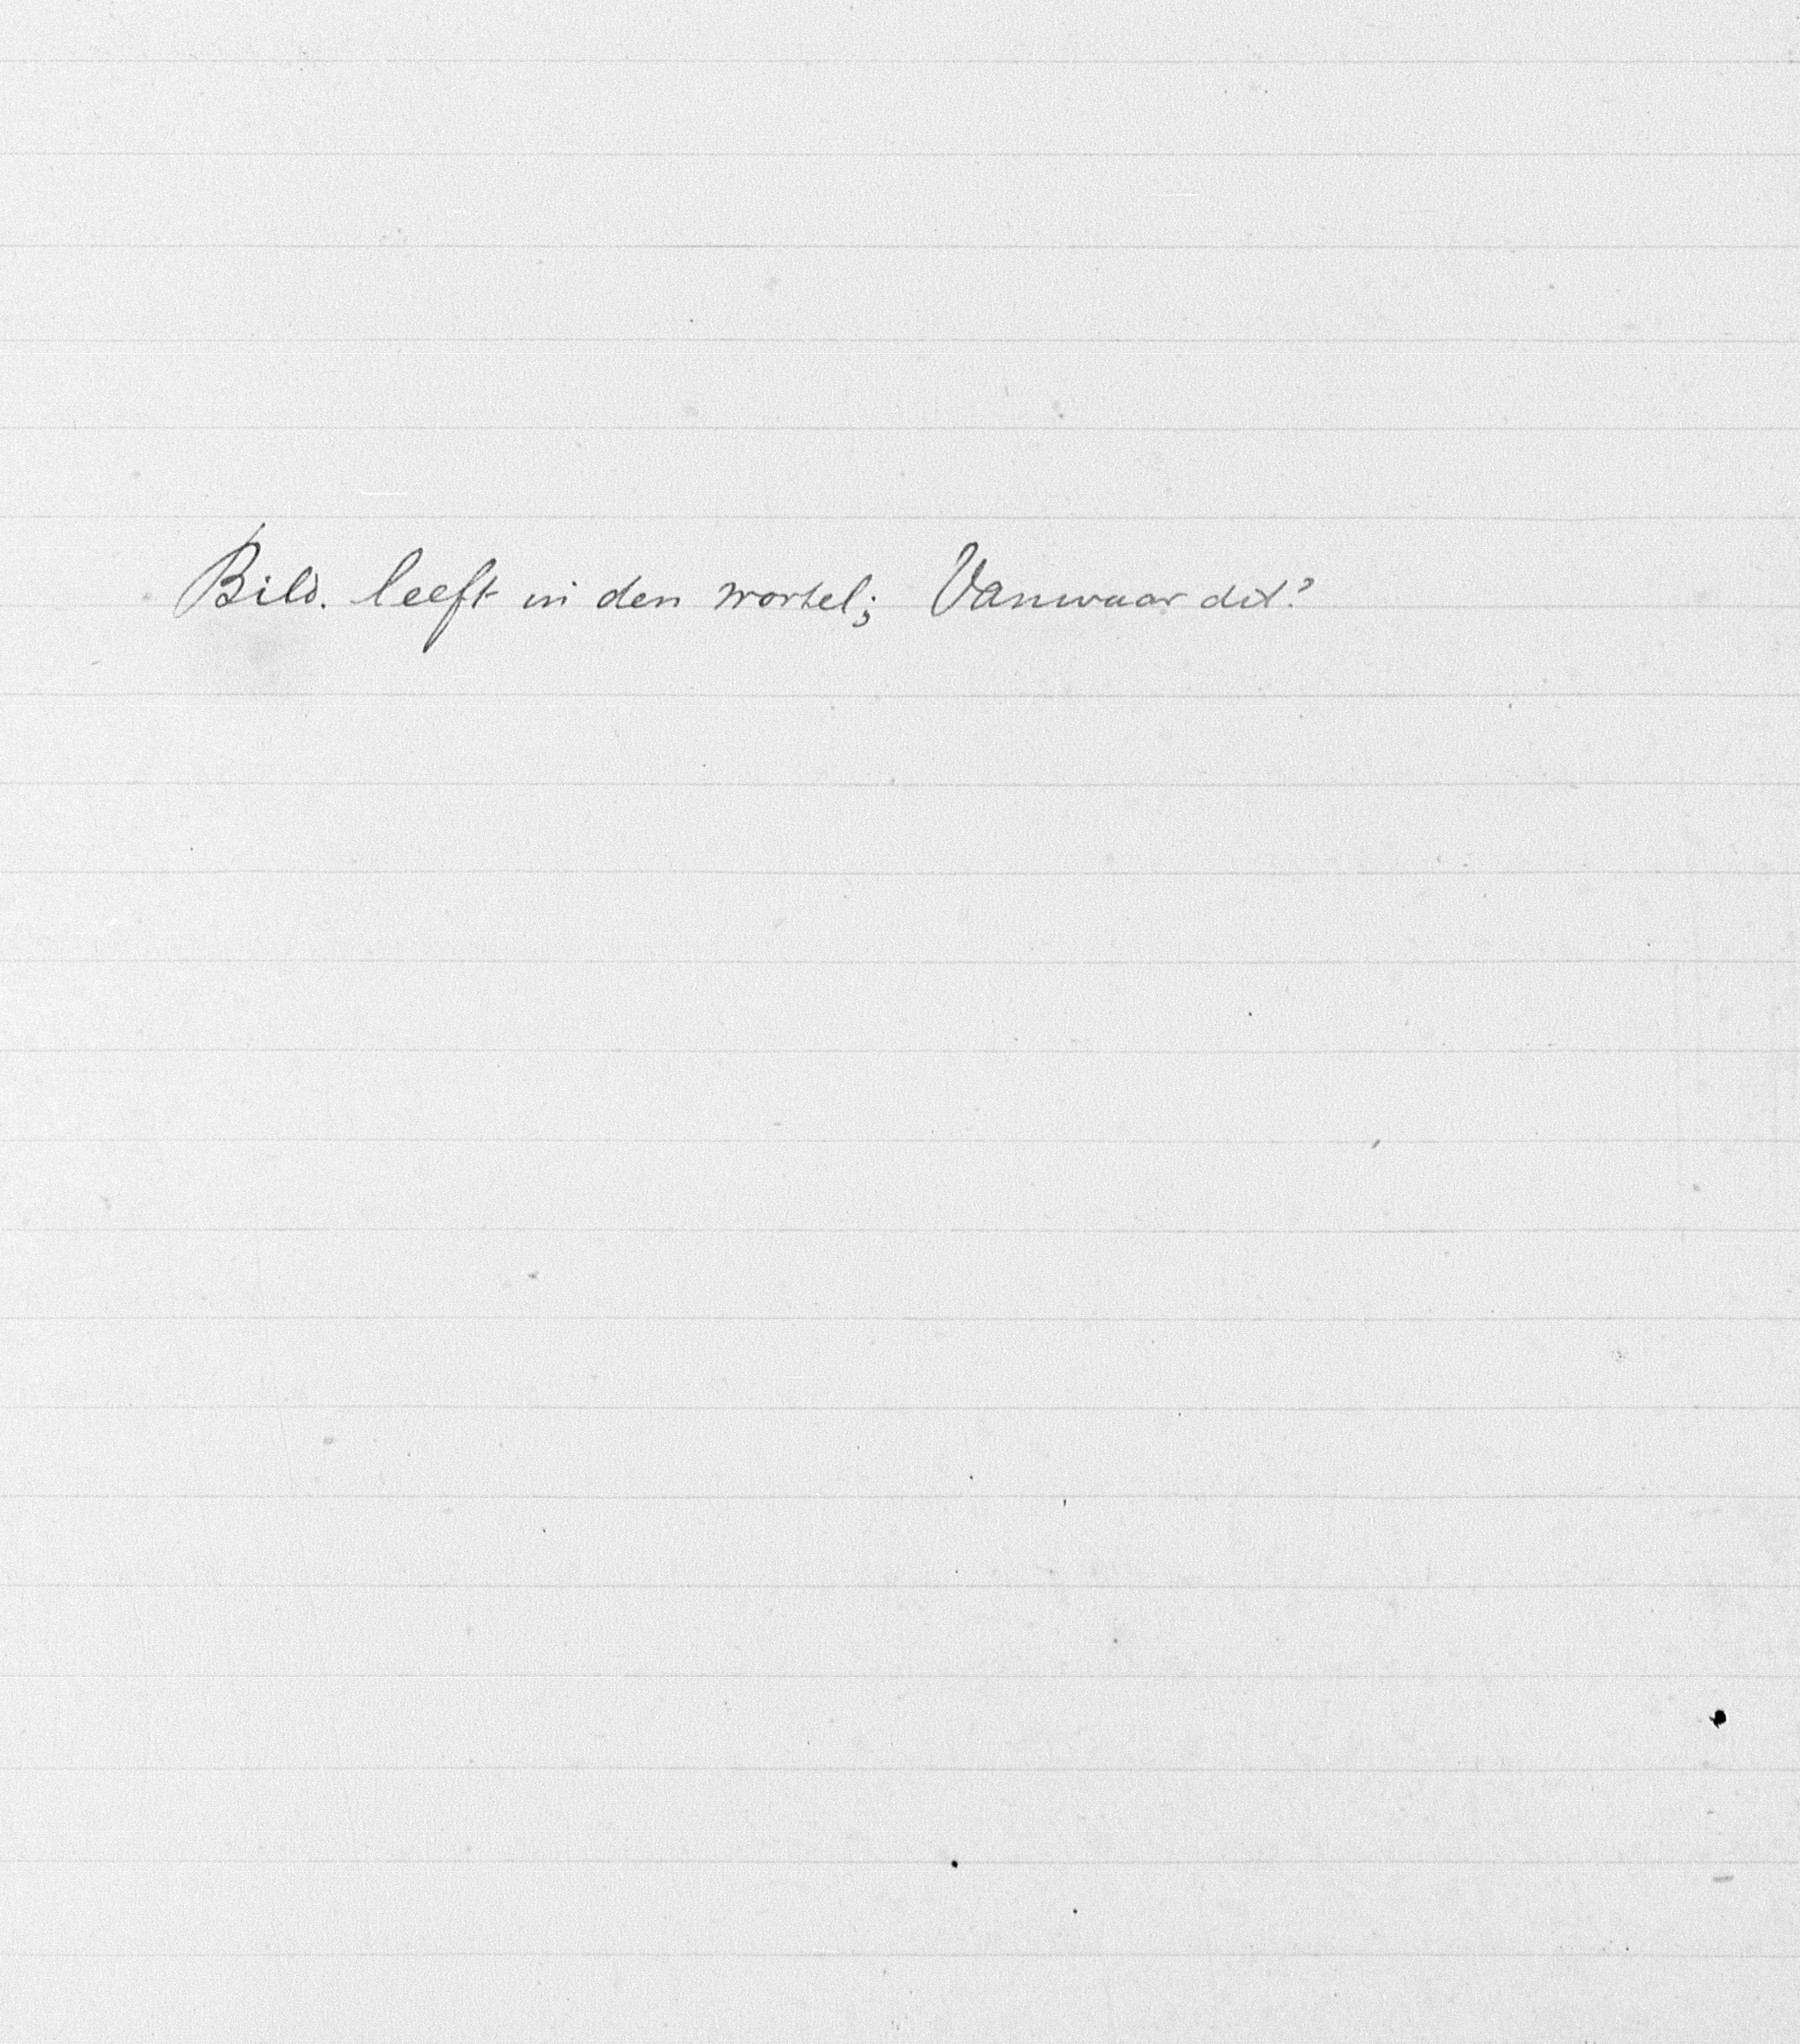 Bild. leeft in den wortel; Vanwaar dit?